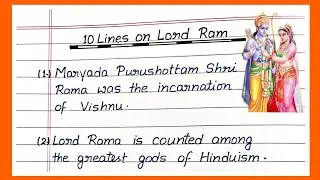 10 Lines on Lord Ram
(1.) Maryada Purushottam Shri
Rama was the incarnation
of Vishnu.
(2.) Lord Rama is counted among
the greatest gods of Hinduism.